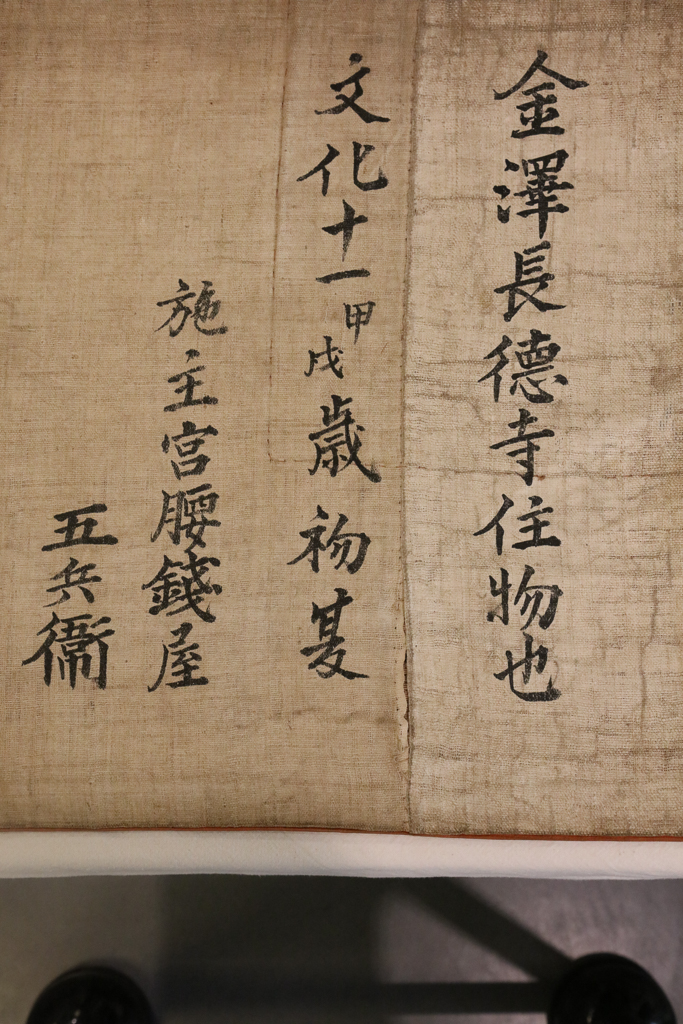 金澤長德寺住物也
文化十一甲戌歳初夏
施主宮腰錢屋
五兵衞